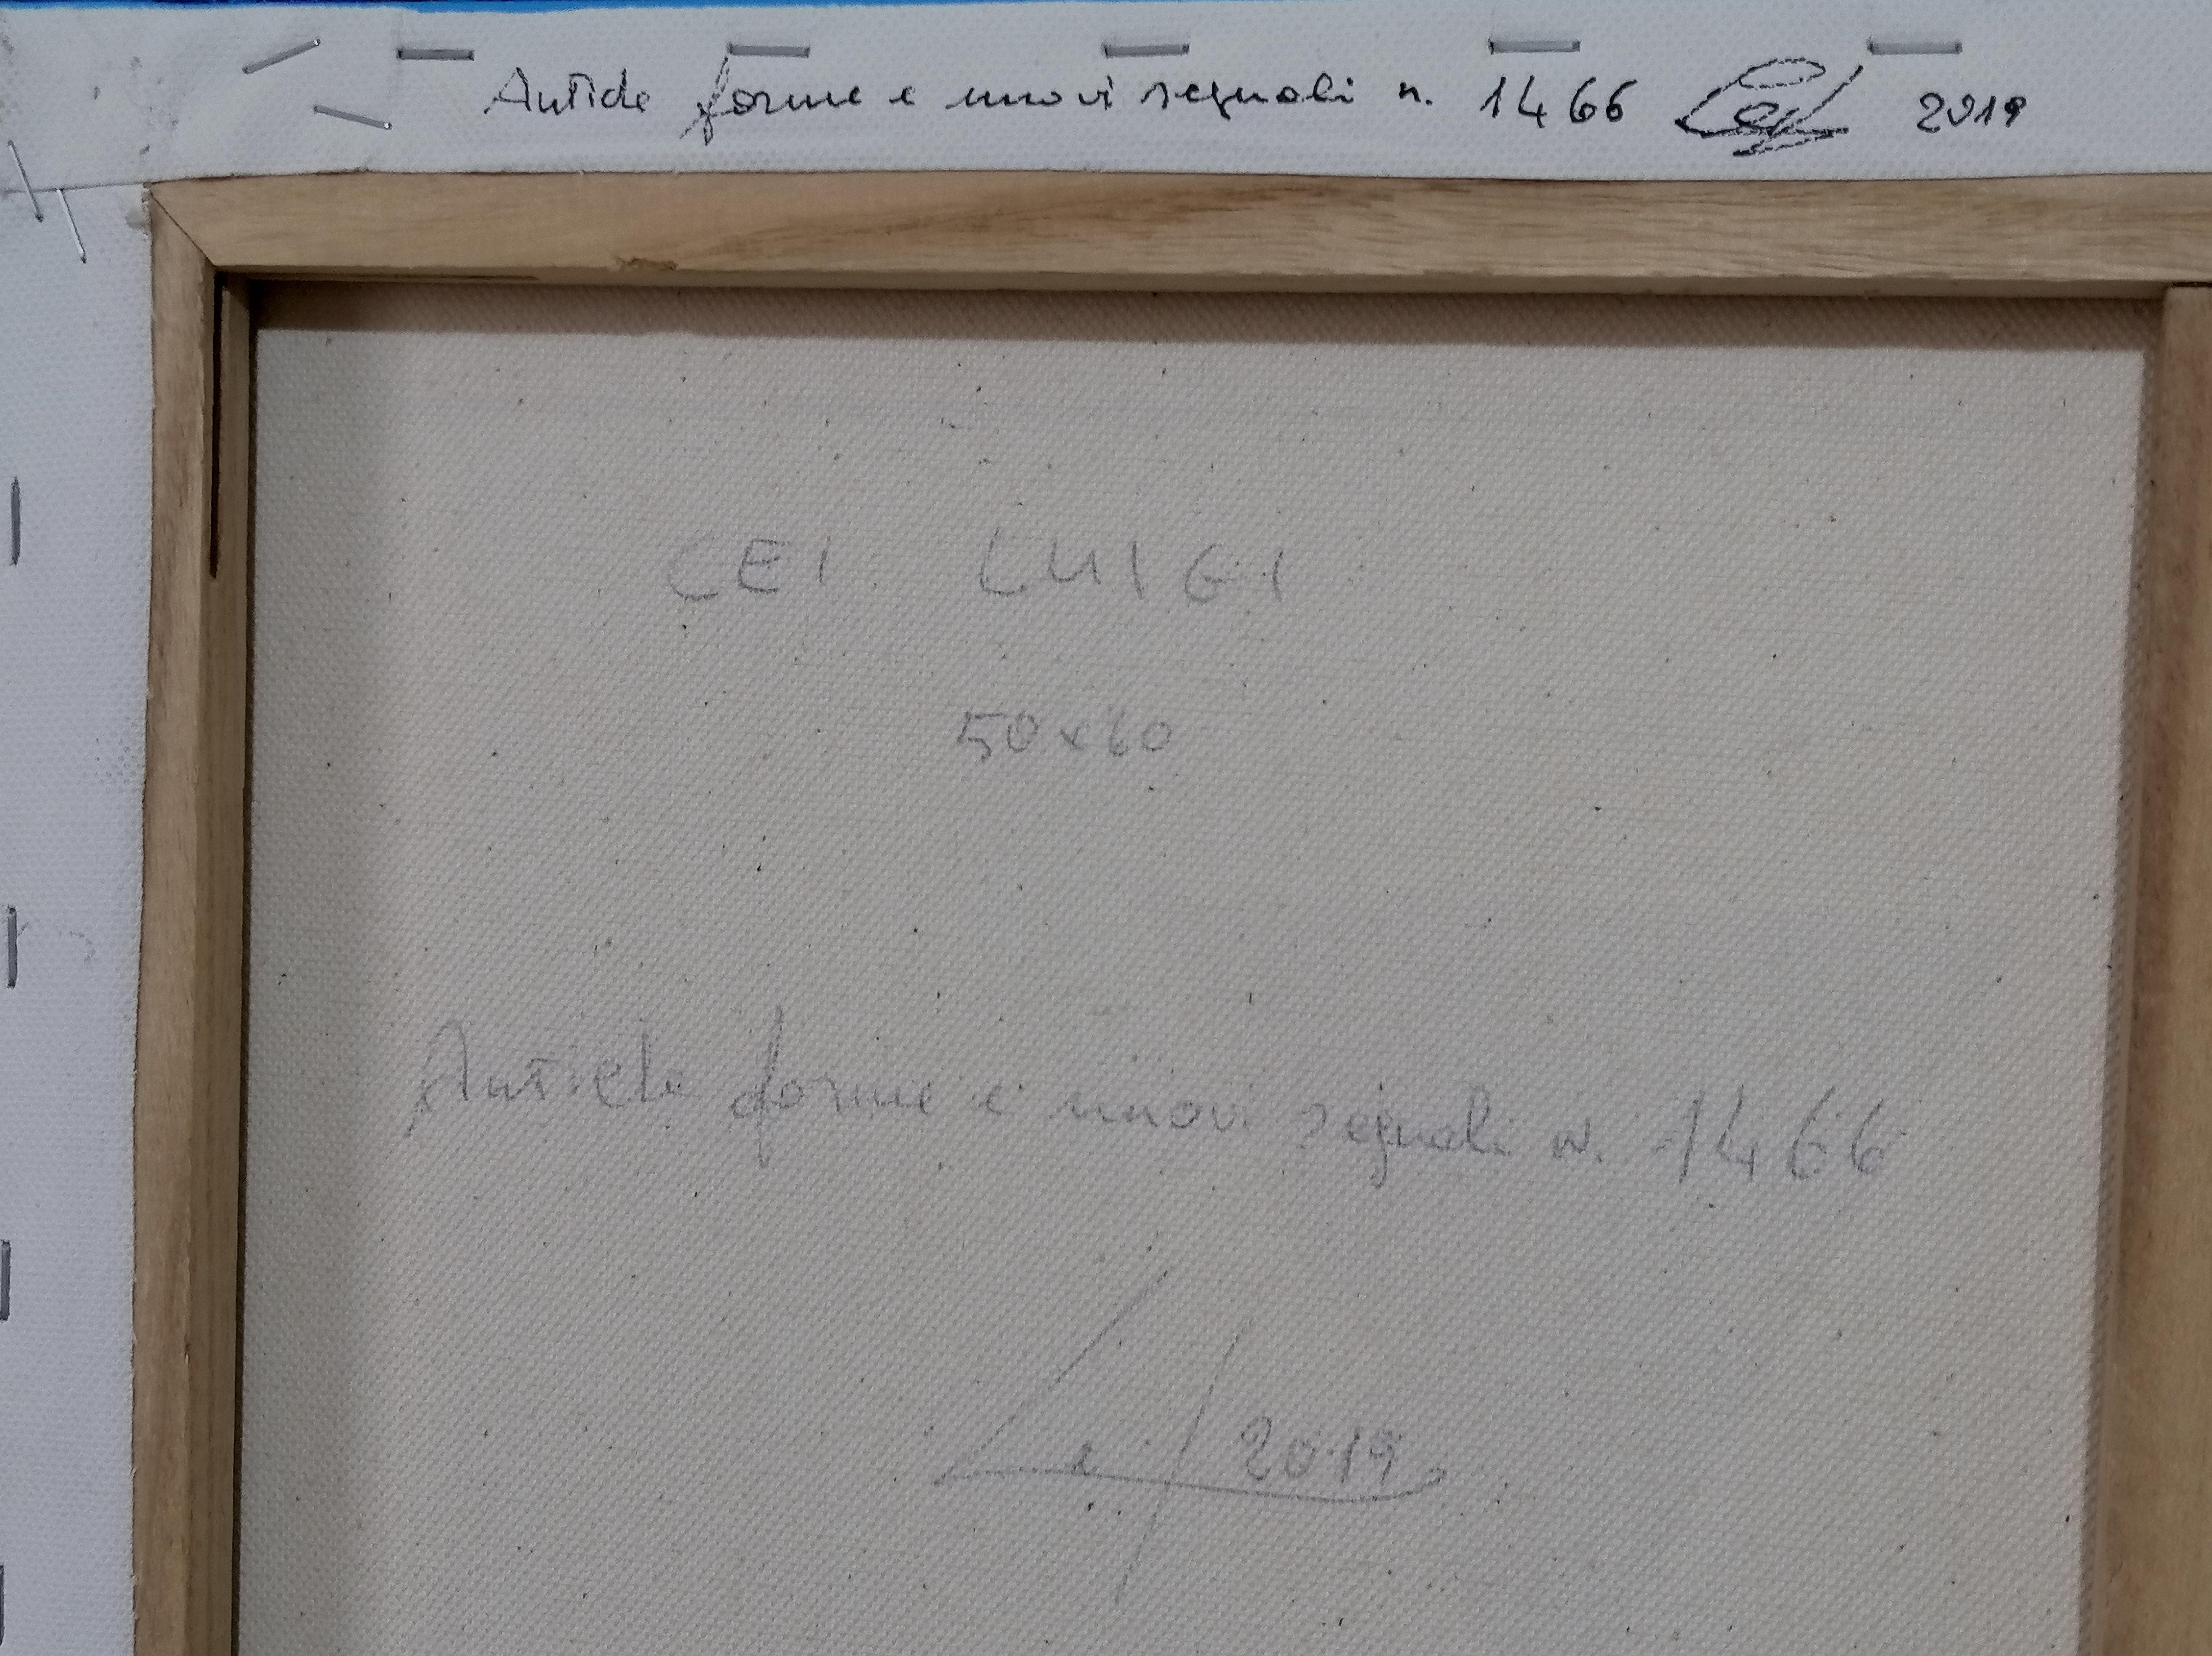 Antiche forme e nuovi segnali n. 1466 2019
CEI LUIGI
50x60
Antiche forme e nuovi segnali n. 1466
2019